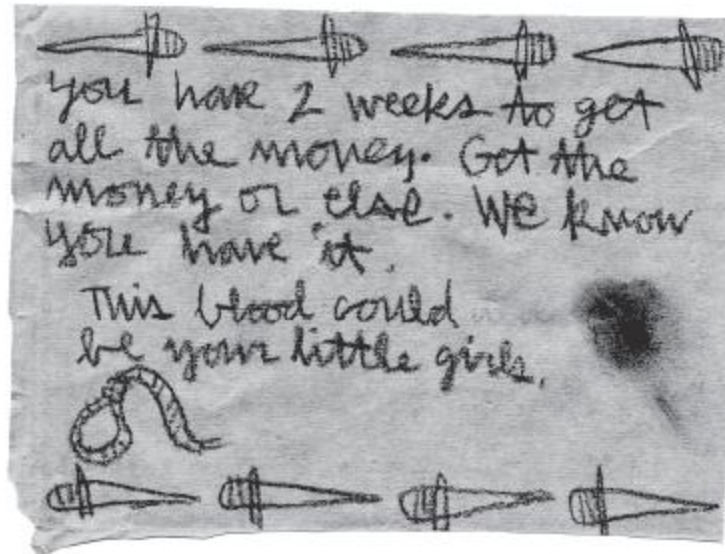 you have 2 weeks to get
all the money. Get the
money or else. We know
you have it.
This blood could
be your little girls.